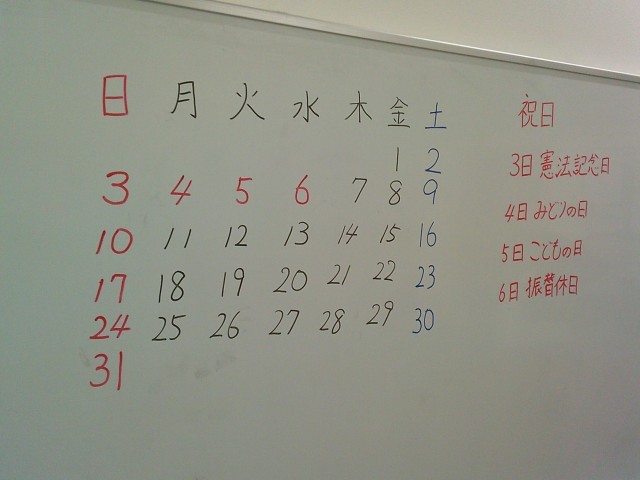 日 月 火 水 木 金 土
1 2
3 4 5 6 7 8 9
10 11 12 13 14 15 16
17 18 19 20 21 22 23
24 25 26 27 28 29 30
31
祝日
3日 憲法記念日
4日 みどりの日
5日 こどもの日
6日 振替休日